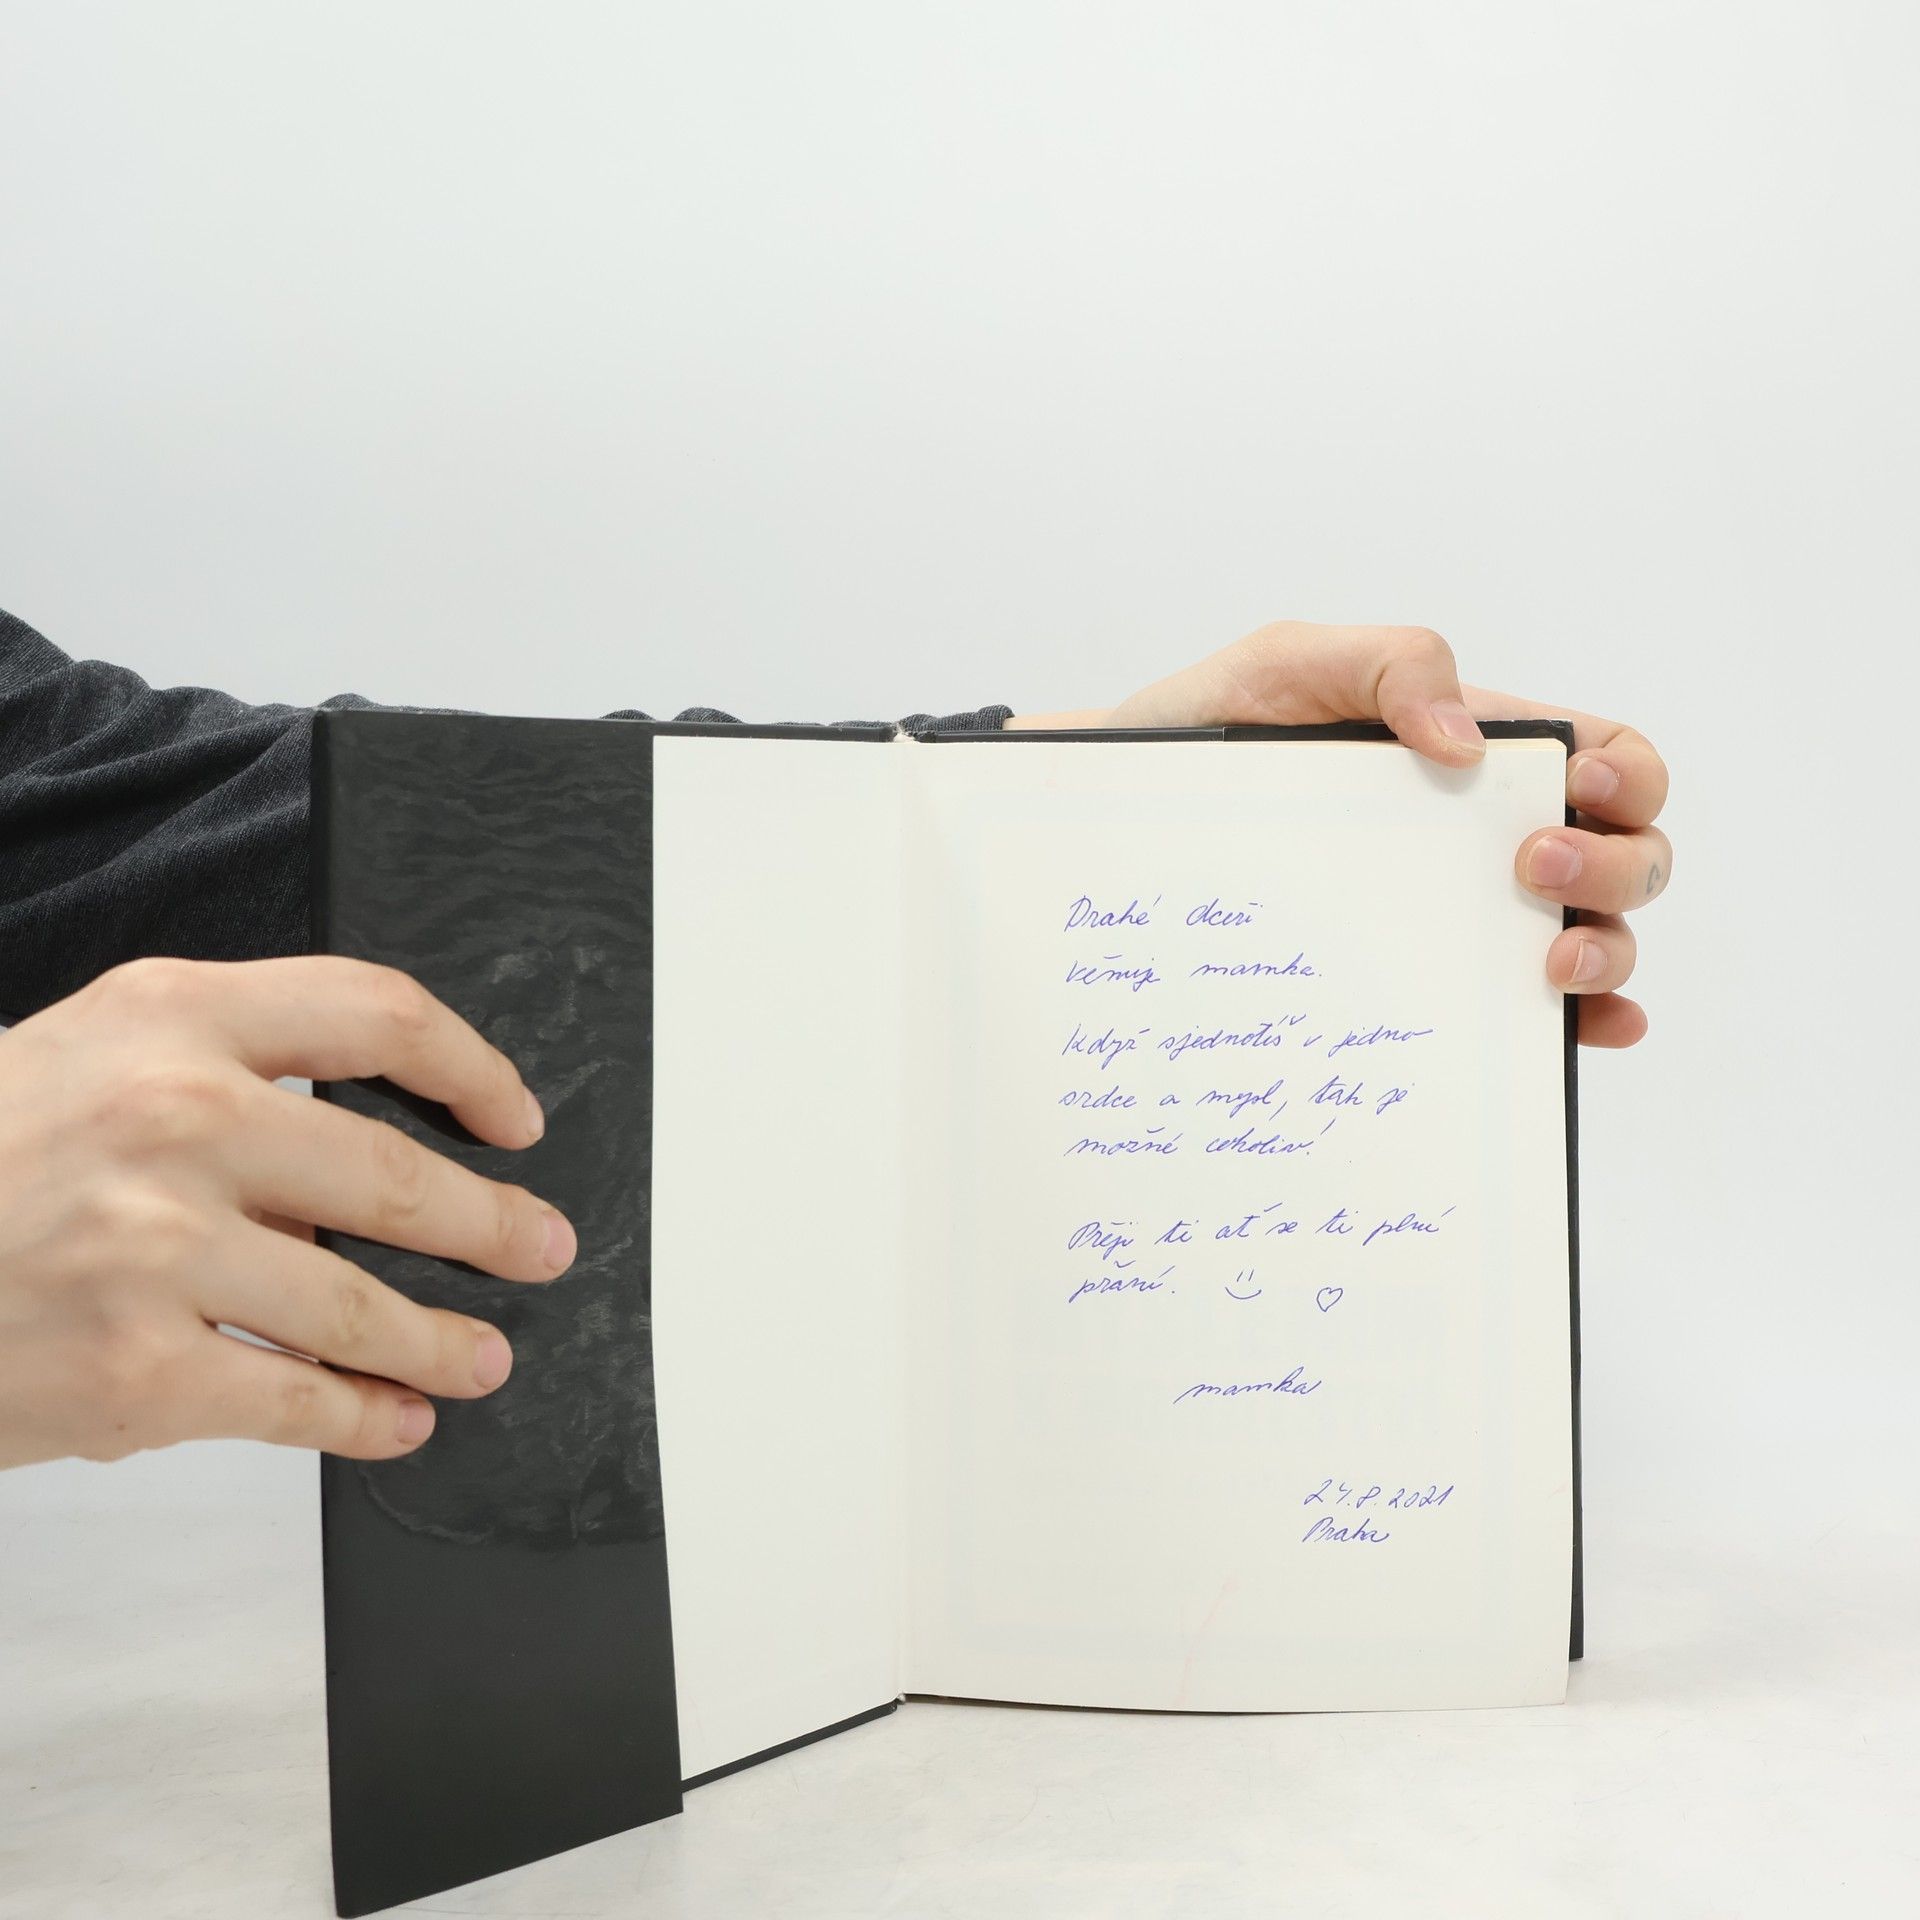 Drahé dceři
věnuje mamka.
Když sjednotíš v jedno
srdce a mysl, tak je
možné cokoliv!
Přeji ti ať se ti plní
přání.
mamka
24.8.2021
Praha